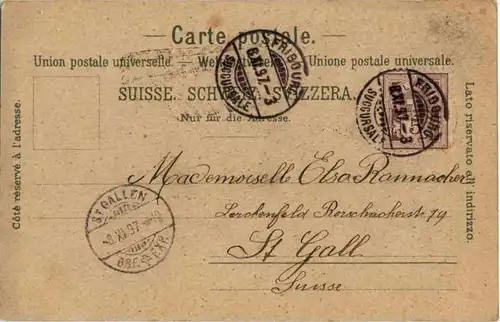 Carte postale.
Union postale universelle. — Weltpostverein. — Unione postale universale.
SUISSE. SCHWEIZ. SVIZZERA.
Nur für die Adresse.
Côté réservé à l'adresse.
Lato riservato all' indirizzo.
FRIBOURG
8.XI.97.-3
SUCCURSALE
FRIBOURG
8.XI.97.-3
SUCCURSALE
15
ST. GALLEN
8.XI.97.
BRF. EXP.
Mademoiselle Elsa Rannacher
Lerchenfeld Rorschacherst. 79
St Gall
Suisse